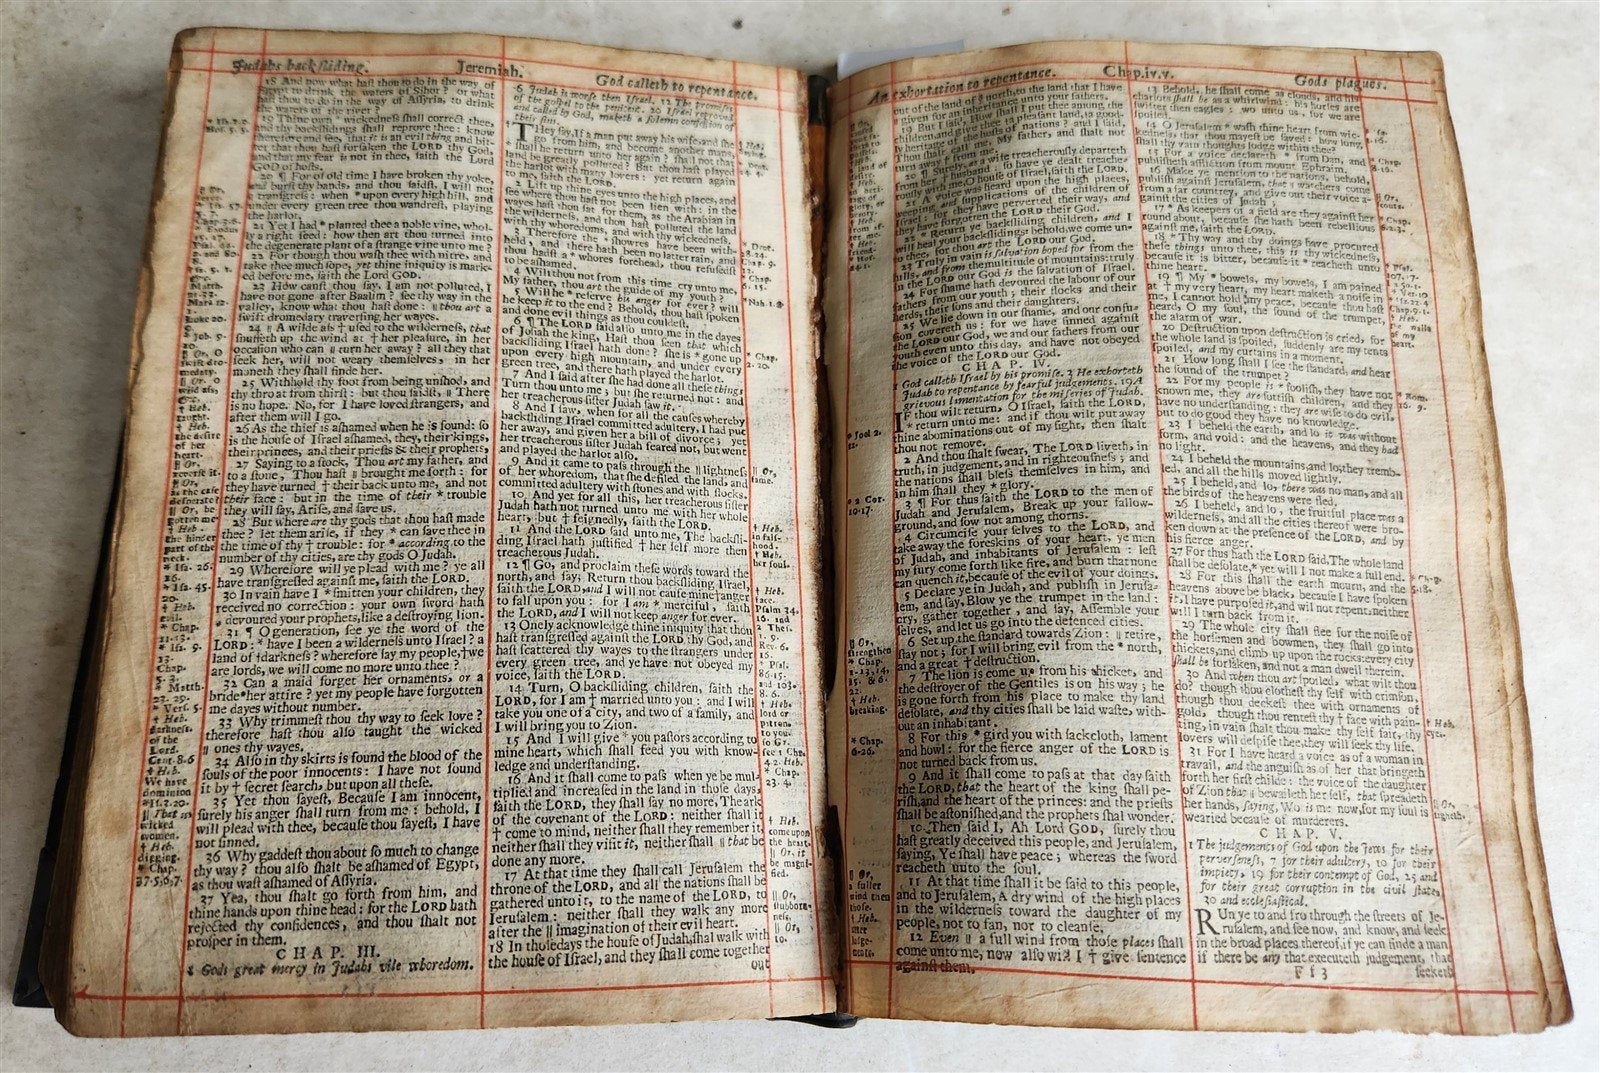 Judahs backſliding.
Jeremiah.
God calleth to repentance.
18 And now what haſt thou to do in the way of
Egypt to drink the waters of Sihor? or what
haſt thou to do in the way of Aſſyria, to drink
the waters of the river?
19 Thine own * wickedneſs ſhall correct thee,
and thy backſlidings ſhall reprove thee: know
therefore and ſee, that it is an evil thing and bit-
ter that thou haſt forſaken the LORD thy God,
and that my fear is not in thee, ſaith the Lord
GOD of hoſts.
20 ¶ For of old time I have broken thy yoke,
and burſt thy bands, and thou ſaidſt, I will not
tranſgreſs: when * upon every high hill, and
under every green tree thou wandreſt, playing
the harlot.
21 Yet I had * planted thee a noble vine, whol-
ly a right ſeed: how then art thou turned into
the degenerate plant of a ſtrange vine unto me?
22 For though thou waſh thee with nitre, and
take thee much ſope, yet thine iniquity is mark-
ed before me, ſaith the Lord GOD.
23 How canſt thou ſay, I am not polluted, I
have not gone after Baalim? ſee thy way in the
valley, know what thou haſt done: || thou art a
ſwift dromedary traverſing her wayes.
24 || A wilde aſs † uſed to the wilderneſs, that
ſnuffeth up the wind at † her pleaſure, in her
occaſion who can || turn her away? all they that
ſeek her, will not weary themſelves, in her
moneth they ſhall finde her.
25 Withhold thy foot from being unſhod, and
thy throat from thirſt: but thou ſaidſt, || There
is no hope. No, for I have loved ſtrangers, and
after them will I go.
26 As the thief is aſhamed when he is found: ſo
is the houſe of Iſrael aſhamed, they, their kings,
their princes, and their prieſts & their prophets,
27 Saying to a ſtock, Thou art my father, and
to a ſtone, Thou haſt || brought me forth: for
they have turned † their back unto me, and not
their face: but in the time of their * trouble
they will ſay, Ariſe, and ſave us.
28 But where are thy gods that thou haſt made
thee? let them ariſe, if they * can ſave thee in
the time of thy † trouble: for * according to the
number of thy cities, are thy gods O Judah.
29 Wherefore will ye plead with me? ye all
have tranſgreſſed againſt me, ſaith the LORD.
30 In vain have I * ſmitten your children, they
received no correction: your own ſword hath
* devoured your prophets, like a deſtroying lion.
31 ¶ O generation, ſee ye the word of the
LORD: * have I been a wilderneſs unto Iſrael? a
land of † darkneſs? wherefore ſay my people, † we
are lords, we will come no more unto thee?
32 Can a maid forget her ornaments, or a
bride * her attire? yet my people have forgotten
me dayes without number.
33 Why trimmeſt thou thy way to ſeek love?
therefore haſt thou alſo taught the wicked
|| ones thy wayes.
34 Alſo in thy skirts is found the blood of the
ſouls of the poor innocents: I have not found
it by † ſecret ſearch, but upon all theſe.
35 Yet thou ſayeſt, Becauſe I am innocent,
ſurely his anger ſhall turn from me: behold, I
will plead with thee, becauſe thou ſayeſt, I have
not ſinned.
36 Why gaddeſt thou about ſo much to change
thy way? thou alſo ſhalt be aſhamed of Egypt,
as thou waſt aſhamed of Aſſyria.
37 Yea, thou ſhalt go forth from him, and
thine hands upon thine head: for the LORD hath
rejected thy confidences, and thou ſhalt not
proſper in them.
CHAP. III.
1 Gods great mercy in Judahs vile whoredom.
6 Judah is worſe then Iſrael. 12 The promiſes
of the goſpel to the penitent. 20 Iſrael reproved
and called by God, maketh a ſolemn confeſſion of
their ſins.
THey ſay, If a man put away his wife, and ſhe
go from him, and become another mans,
ſhall he return unto her again? ſhall not that
land be greatly polluted? But thou haſt played
the harlot with many lovers: yet return again
to me, ſaith the LORD.
2 Lift up thine eyes unto the high places, and
ſee where thou haſt not been lien with: in the
wayes haſt thou ſat for them, as the Arabian in
the wilderneſs, and thou haſt polluted the land
with thy whoredoms, and with thy wickedneſs.
3 Therefore the * ſhowres have been with-
held, and there hath been no latter rain, and
thou hadſt a * whores forehead, thou refuſedſt
to be aſhamed.
4 Wilt thou not from this time cry unto me,
My father, thou art the guide of my youth?
5 Will he * reſerve his anger for ever? will
he keep it to the end? Behold, thou haſt ſpoken
and done evil things as thou couldeſt.
6 ¶ The LORD ſaid alſo unto me in the dayes
of Joſiah the king, Haſt thou ſeen that which
backſliding Iſrael hath done? ſhe is * gone up
upon every high mountain, and under every
green tree, and there hath played the harlot.
7 And I ſaid after ſhe had done all theſe things
Turn thou unto me; but ſhe returned not: and
her treacherous ſiſter Judah ſaw it.
8 And I ſaw, when for all the cauſes whereby
backſliding Iſrael committed adultery, I had put
her away, and given her a bill of divorce; yet
her treacherous ſiſter Judah feared not, but went
and played the harlot alſo.
9 And it came to paſs through the || lightneſs
of her whoredom, that ſhe defiled the land, and
committed adultery with ſtones and with ſtocks.
10 And yet for all this, her treacherous ſiſter
Judah hath not turned unto me with her whole
heart, but † feignedly, ſaith the LORD.
11 And the LORD ſaid unto me, The backſli-
ding Iſrael hath juſtified † her ſelf more then
treacherous Judah.
12 ¶ Go, and proclaim theſe words toward the
north, and ſay, Return thou backſliding Iſrael,
ſaith the LORD, and I will not cauſe mine † anger
to fall upon you: for I am * merciful, ſaith
the LORD, and I will not keep anger for ever.
13 Onely acknowledge thine iniquity that thou
haſt tranſgreſſed againſt the LORD thy God, and
haſt ſcattered thy wayes to the ſtrangers under
every green tree, and ye have not obeyed my
voice, ſaith the LORD.
14 Turn, O backſliding children, ſaith the
LORD, for I am † married unto you: and I will
take you one of a city, and two of a family, and
I will bring you to Zion.
15 And I will give * you paſtors according to
mine heart, which ſhall feed you with know-
ledge and underſtanding.
16 And it ſhall come to paſs when ye be mul-
tiplied and increaſed in the land in thoſe days,
ſaith the LORD, they ſhall ſay no more, The ark
of the covenant of the LORD: neither ſhall it
† come to mind, neither ſhall they remember it,
neither ſhall they viſit it, neither ſhall || that be
done any more.
17 At that time they ſhall call Jeruſalem the
throne of the LORD, and all the nations ſhall be
gathered unto it, to the name of the LORD, to
Jeruſalem: neither ſhall they walk any more
after the || imagination of their evil heart.
18 In thoſe days the houſe of Judah ſhal walk with
the houſe of Iſrael, and they ſhall come together
out
An exhortation to repentance.
Chap.iv.v.
Gods plagues.
out of the land of † north, to the land that I have
† given for an inheritance unto your fathers.
19 But I ſaid, How ſhall I put thee among the
children, and give thee † a pleaſant land, † a good-
ly heritage of the hoſts of nations? and I ſaid,
Thou ſhalt call me, My father, and ſhalt not
turn away † from me.
20 ¶ Surely as a wife treacherouſly departeth
from her † husband: ſo have ye dealt treache-
rouſly with me, O houſe of Iſrael, ſaith the LORD.
21 A voice was heard upon the high places,
weeping, and ſupplications of the children of
Iſrael: for they have perverted their way, and
they have forgotten the LORD their God.
22 * Return ye backſliding children, and I
will heal your backſlidings: behold, we come un-
to thee, for thou art the LORD our God.
23 Truly in vain is ſalvation hoped for from the
hills, and from the multitude of mountains: truly
in the LORD our God is the ſalvation of Iſrael.
24 For ſhame hath devoured the labour of our
fathers from our youth; their flocks and their
herds, their ſons and their daughters.
25 We lie down in our ſhame, and our confu-
ſion covereth us: for we have ſinned againſt
the LORD our God, we and our fathers from our
youth even unto this day, and have not obeyed
the voice of the LORD our God.
CHAP. IV.
1 God calleth Iſrael by his promiſe. 3 He exhorteth
Judah to repentance by fearful judgements. 19 A
grievous lamentation for the miſeries of Judah.
IF thou wilt return, O Iſrael, ſaith the LORD,
* return unto me: and if thou wilt put away
thine abominations out of my ſight, then ſhalt
thou not remove.
2 And thou ſhalt ſwear, The LORD liveth, in
truth, in judgement, and in righteouſneſs; and
the nations ſhall bleſs themſelves in him, and
in him ſhall they * glory.
3 ¶ For thus ſaith the LORD to the men of
Judah and Jeruſalem, Break up your fallow-
ground, and ſow not among thorns.
4 Circumciſe your ſelves to the LORD, and
take away the foreskins of your heart, ye men
of Judah, and inhabitants of Jeruſalem: leſt
my fury come forth like fire, and burn that none
can quench it, becauſe of the evil of your doings.
5 Declare ye in Judah, and publiſh in Jeruſa-
lem, and ſay, Blow ye the trumpet in the land:
cry, gather together, and ſay, Aſſemble your
ſelves, and let us go into the defenced cities.
6 Set up the ſtandard towards Zion: || retire,
ſtay not; for I will bring evil from the * north,
and a great † deſtruction.
7 The lion is come up from his thicket, and
the deſtroyer of the Gentiles is on his way; he
is gone forth from his place to make thy land
deſolate, and thy cities ſhall be laid waſte, with-
out an inhabitant.
8 For this * gird you with ſackcloth, lament
and howl: for the fierce anger of the LORD is
not turned back from us.
9 And it ſhall come to paſs at that day ſaith
the LORD, that the heart of the king ſhall pe-
riſh, and the heart of the princes: and the prieſts
ſhall be aſtoniſhed, and the prophets ſhal wonder.
10 Then ſaid I, Ah Lord GOD, ſurely thou
haſt greatly deceived this people, and Jeruſalem,
ſaying, Ye ſhall have peace; whereas the ſword
reacheth unto the ſoul.
11 At that time ſhall it be ſaid to this people,
and to Jeruſalem, A dry wind of the high places
in the wilderneſs toward the daughter of my
people, not to fan, nor to cleanſe.
12 Even || a full wind from thoſe places ſhall
come unto me, now alſo will I † give ſentence
againſt them.
13 Behold, he ſhall come as clouds, and his
chariots ſhall be as a whirlwind: his horſes are
ſwifter then eagles: wo unto us, for we are
ſpoiled.
14 O Jeruſalem * waſh thine heart from wic-
kedneſs, that thou mayeſt be ſaved: how long
ſhall thy vain thoughts lodge within thee?
15 For a voice declareth * from Dan, and
publiſheth affliction from mount Ephraim.
16 Make ye mention to the nations, behold,
publiſh againſt Jeruſalem, that watchers come
from a far countrey, and give out their voice a-
gainſt the cities of Judah.
17 * As keepers of a field are they againſt her
round about, becauſe ſhe hath been rebellious
againſt me, ſaith the LORD.
18 * Thy way and thy doings have procured
theſe things unto thee, this is thy wickedneſs,
becauſe it is bitter, becauſe it * reacheth unto
thine heart.
19 ¶ My * bowels, my bowels, I am pained
at † my very heart, my heart maketh a noiſe in
me, I cannot hold my peace, becauſe thou haſt
heard, O my ſoul, the ſound of the trumpet,
the alarm of war.
20 Deſtruction upon deſtruction is cried, for
the whole land is ſpoiled, ſuddenly are my tents
ſpoiled, and my curtains in a moment.
21 How long ſhall I ſee the ſtandard, and hear
the ſound of the trumpet?
22 For my people is * fooliſh, they have not
known me, they are ſottiſh children, and they
have no underſtanding: they are wiſe to do evil,
but to do good they have no knowledge.
23 I beheld the earth, and lo it was without
form, and void: and the heavens, and they had
no light.
24 I beheld the mountains, and lo, they tremb-
led, and all the hills moved lightly.
25 I beheld, and lo, there was no man, and all
the birds of the heavens were fled.
26 I beheld, and lo, the fruitful place was a
wilderneſs, and all the cities thereof were bro-
ken down at the preſence of the LORD, and by
his fierce anger.
27 For thus hath the LORD ſaid, The whole land
ſhall be deſolate, * yet will I not make a full end.
28 For this ſhall the earth mourn, and the
heavens above be black, becauſe I have ſpoken
it, I have purpoſed it, and wil not repent, neither
will I turn back from it.
29 The whole city ſhall flee for the noiſe of
the horſemen and bowmen, they ſhall go into
thickets, and climb up upon the rocks: every city
ſhall be forſaken, and not a man dwell therein.
30 And when thou art ſpoiled, what wilt thou
do? though thou clotheſt thy ſelf with crimſon,
though thou deckeſt thee with ornaments of
gold, though thou renteſt thy † face with pain-
ting, in vain ſhalt thou make thy ſelf fair, thy
lovers will deſpiſe thee, they will ſeek thy life.
31 For I have heard a voice as of a woman in
travail, and the anguiſh as of her that bringeth
forth her firſt childe: the voice of the daughter
of Zion that || bewaileth her ſelf, that ſpreadeth
her hands, ſaying, Wo is me now, for my ſoul is
wearied becauſe of murderers.
CHAP. V.
1 The judgements of God upon the Jews for their
perverſeneſs, 7 for their adultery, 10 for their
impiety, 19 for their contempt of God, 25 and
for their great corruption in the civil ſtate,
30 and eccleſiaſtical.
RUn ye to and fro through the ſtreets of Je-
ruſalem, and ſee now, and know, and ſeek
in the broad places thereof, if ye can finde a man
if there be any that executeth judgement, that
Ff3
ſeeketh